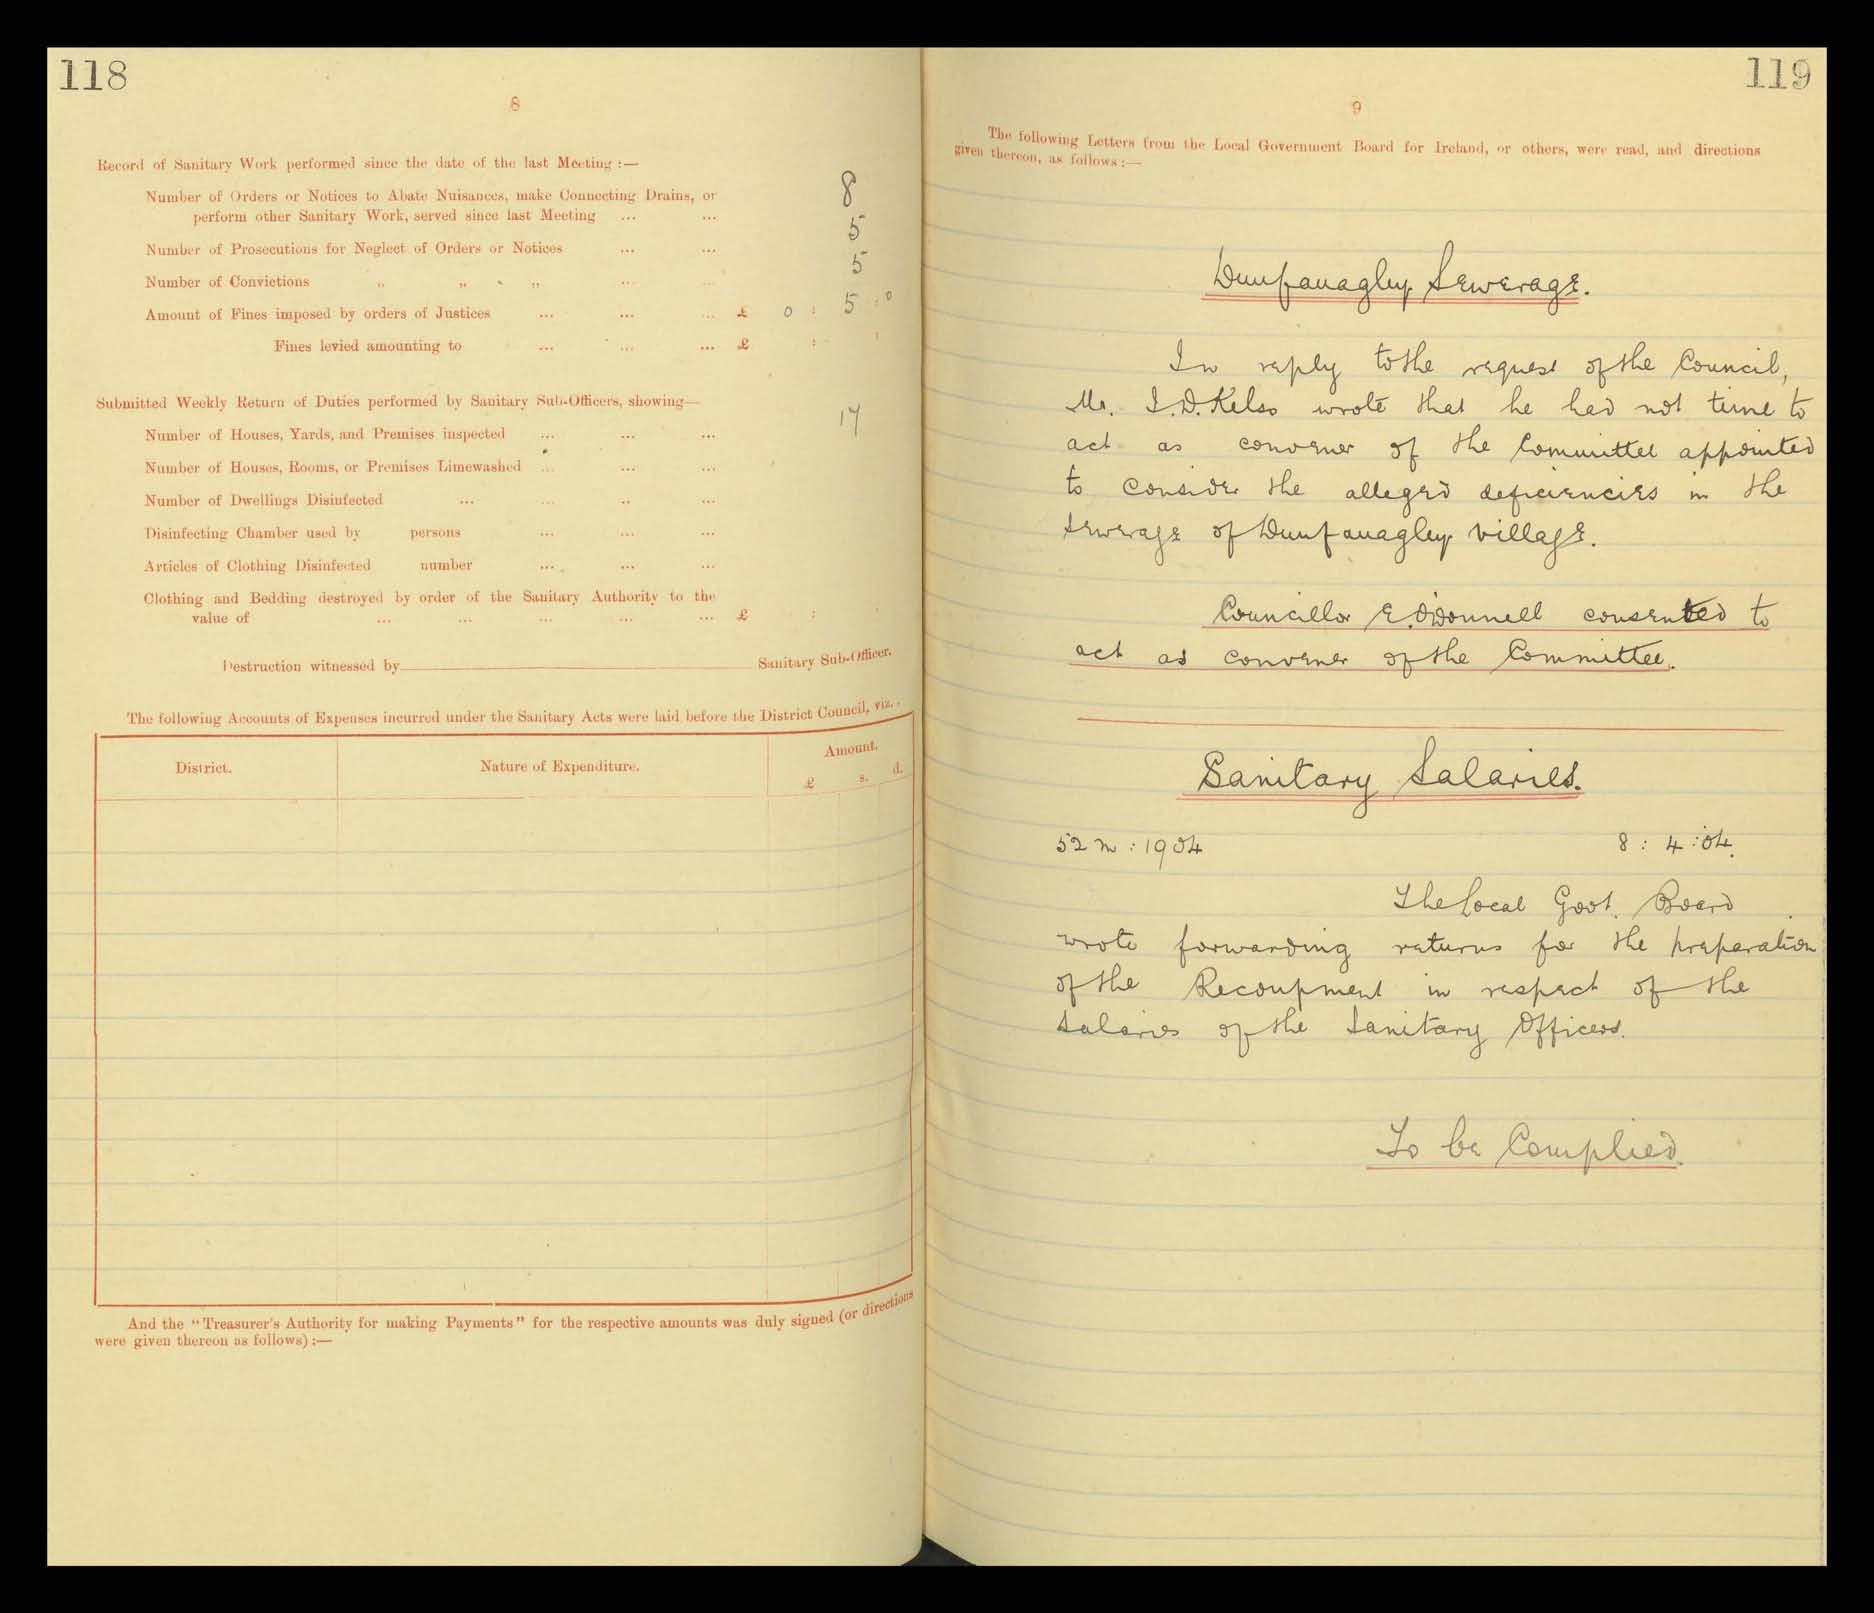 118
8
Record of Sanitary Work performed since the date of the last Meeting :—
Number of Orders or Notices to Abate Nuisances, make Connecting Drains, or
perform other Sanitary Work, served since last Meeting ... ... 8
Number of Prosecutions for Neglect of Orders or Notices ... ... 5
Number of Convictions „ „ „ ... ... 5
Amount of Fines imposed by orders of Justices ... ... ... £ 0 : 5 : 0
Fines levied amounting to ... ... ... £ : :
Submitted Weekly Return of Duties performed by Sanitary Sub-Officers, showing—
Number of Houses, Yards, and Premises inspected ... ... ... 17
Number of Houses, Rooms, or Premises Limewashed ... ... ...
Number of Dwellings Disinfected ... ... ... ...
Disinfecting Chamber used by persons ... ... ...
Articles of Clothing Disinfected number ... ... ...
Clothing and Bedding destroyed by order of the Sanitary Authority to the
value of ... ... ... ... ... £ :
Destruction witnessed by Sanitary Sub-Officer.
The following Accounts of Expenses incurred under the Sanitary Acts were laid before the District Council, viz. :
District. Nature of Expenditure. Amount.
£ s. d.
And the "Treasurer's Authority for making Payments" for the respective amounts was duly signed (or directions
were given thereon as follows) :—
119
9
The following Letters from the Local Government Board for Ireland, or others, were read, and directions
given thereon, as follows :—
Dunfanaghy Sewerage.
In reply to the request of the Council,
Mr. I.D. Kelso wrote that he had not time to
act as convener of the Committee appointed
to consider the alleged deficiencies in the
sewerage of Dunfanaghy village.
Councillor E. O'Donnell consented to
act as convener of the Committee.
Sanitary Salaries.
52 m : 1904 8 : 4 : 04.
The Local Govt. Board
wrote forwarding returns for the preparation
of the Recoupment in respect of the
salaries of the Sanitary Officers.
To be Complied.